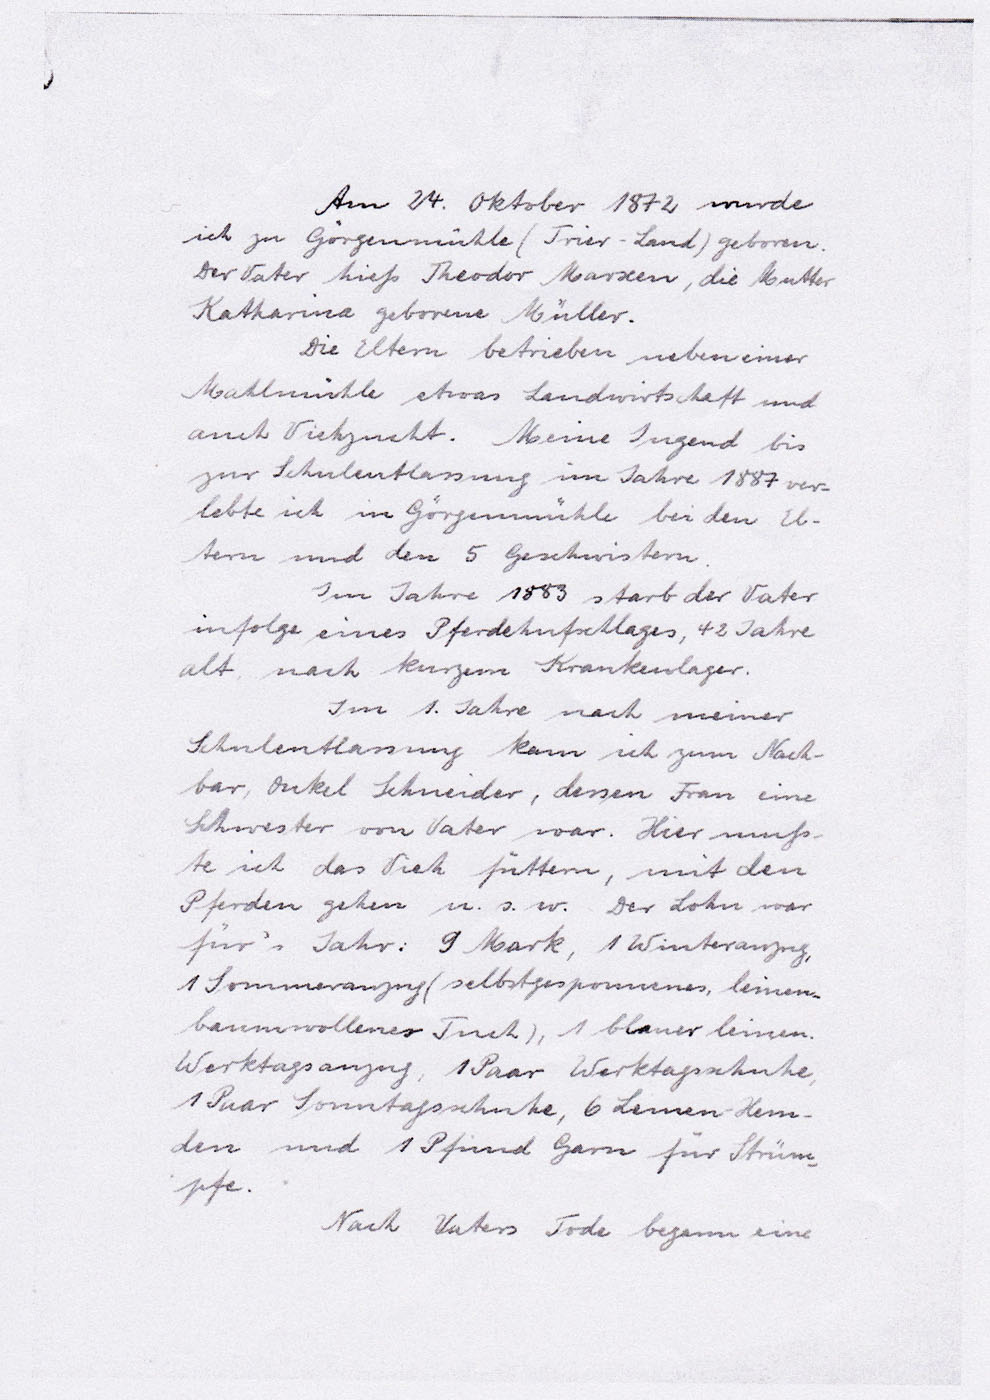 Am 24. Oktober 1872 wurde
ich zu Görgenmühle (Trier-Land) geboren.
Der Vater hieß Theodor Marxen, die Mutter
Katharina geborene Müller.
Die Eltern betrieben neben einer
Mahlmühle etwas Landwirtschaft und
auch Viehzucht. Meine Jugend bis
zur Schulentlassung im Jahre 1887 ver=
lebte ich in Görgenmühle bei den El-
tern und den 5 Geschwistern.
Im Jahre 1883 starb der Vater
infolge eines Pferdehufschlages, 42 Jahre
alt, nach kurzem Krankenlager.
Im 1. Jahre nach meiner
Schulentlassung kam ich zum Nach-
bar, Onkel Schneider, dessen Frau eine
Schwester von Vater war. Hier muß-
te ich das Vieh füttern, mit den
Pferden gehen u. s. w. Der Lohn war
für's Jahr: 9 Mark, 1 Winteranzug,
1 Sommeranzug (selbstgesponnenes, leinen-
baumwollenes Tuch), 1 blauer leinen.
Werktagsanzug, 1 Paar Werktagsschuhe,
1 Paar Sonntagsschuhe, 6 Leinen-Hem-
den und 1 Pfund Garn für Strüm=
pfe.
Nach Vaters Tode begann eine